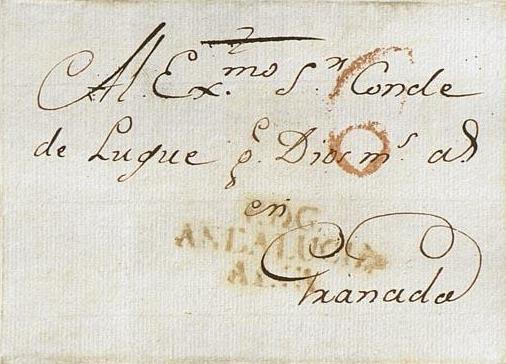 Al Ex.mo S.r Conde
de Luque q.e Dios m.s a.s
en
Granada
ANDALUCIA